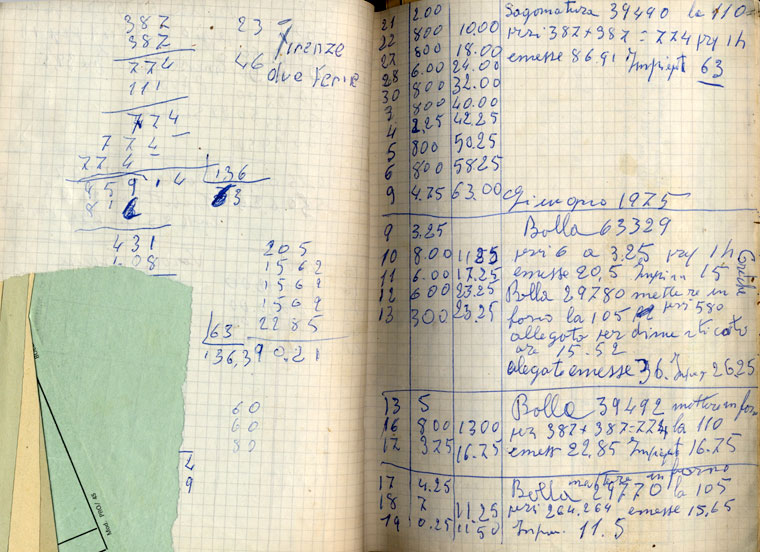 387
387
774
111
774
774
774
8591.4 136
816 63
431
408
23
46
Firenze
due ferire
205
1562
1562
1562
2285
63
136,3 90.21
60
60
80
4
9
Mod. PRO/45
21 2.00
22 800 10.00
27 800 18.00
28 6.00 24.00
30 800 32.00
3 800 40.00
4 2.25 42.25
5 800 50.25
6 800 58.25
9 4.75 63.00
Sagomatura 39490 la 110
pezzi 387+387=774 1h
emesse 86.91 Impiegate 63
Giugno 1975
9 3.25
10 8.00 11.25
11 6.00 17.25
12 600 23.25
13 300 23.25
Bolla 63329
pezzi 6 a 3.25 1h
emesse 20,5 15
Bolla 29780 mettere in
forno la 105 pezzi 580
allegato per dimenticato
ore 15.52
alegato emesse 36. 26.25
13 5
16 800 1300
17 375 16.75
Bolla 39492 mettere in forno
pezzi 387+387=774 la 110
emesse 22,85 Impiegate 16.75
17 4.25
18 7 11.25
19 0.25 11.50
mettere in forno
Bolla 29770 la 105
pezzi 264.264 emesse 15,65
11.5